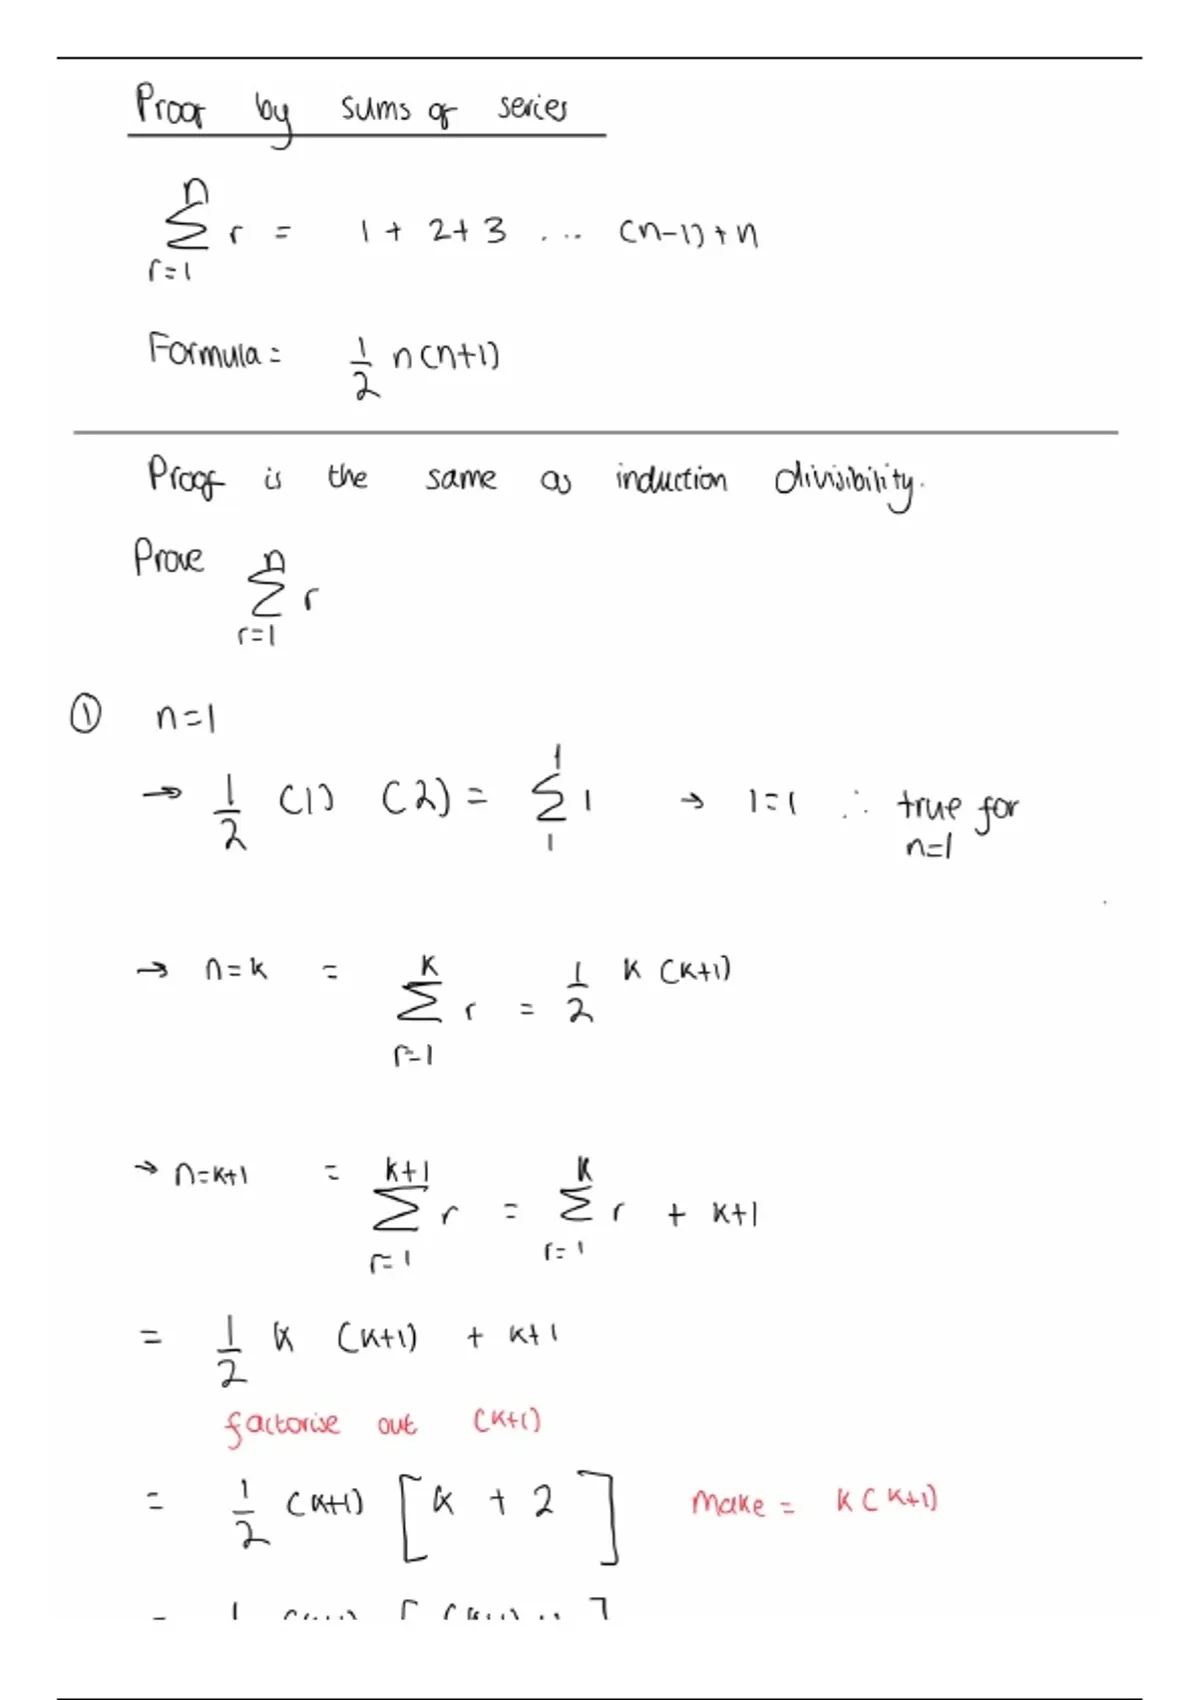 Proof by sums of series
n
∑ r = 1 + 2 + 3 ... (n-1) + n
r=1
Formula = 1/2 n(n+1)
Proof is the same as induction divisibility.
Prove n
∑ r
r=1
① n=1
→ 1/2 (1) (2) = 1 ∑ 1 1 → 1=1 ∴ true for
n=1
→ n=k = k ∑ r=1 r = 1/2 k (k+1)
→ n=k+1 = k+1 ∑ r=1 r = k ∑ r=1 r + k+1
= 1/2 k (k+1) + k+1
factorise out (k+1)
= 1/2 (k+1) [k + 2] make = k(k+1)